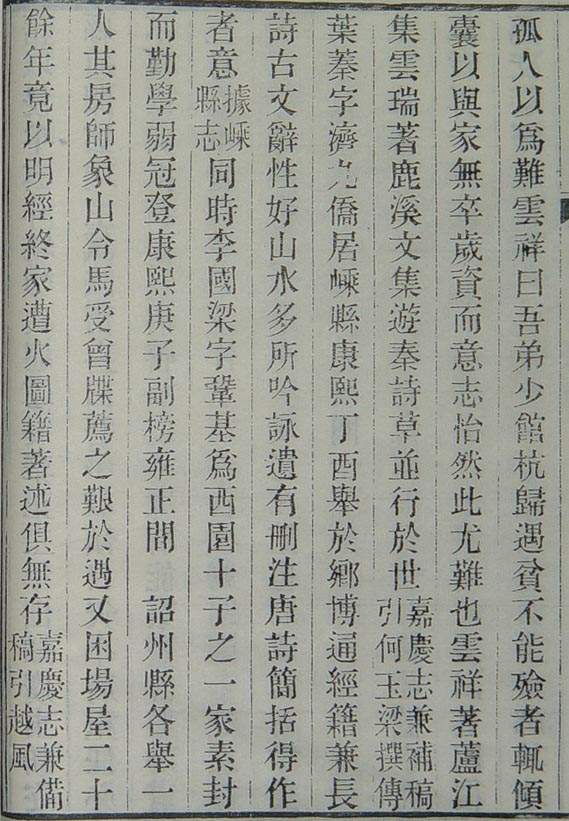 孤人以爲難雲祥曰吾弟少館杭歸遇貧不能殮者輒傾
囊以與家無卒歲資而意志怡然此尤難也雲祥著蘆江
集雲瑞著鹿溪文集遊秦詩草並行於世嘉慶志兼補稿引何玉梁撰傳
葉蓁字濟九僑居嵊縣康熙丁酉舉於鄉博通經籍兼長
詩古文辭性好山水多所吟詠遺有刪注唐詩簡括得作
者意據嵊縣志同時李國梁字鞏基爲西園十子之一家素封
而勤學弱冠登康熙庚子副榜雍正間 詔州縣各舉一
人其房師象山令馬受曾牒薦之艱於遇又困場屋二十
餘年竟以明經終家遭火圖籍著述俱無存嘉慶志兼備稿引越風